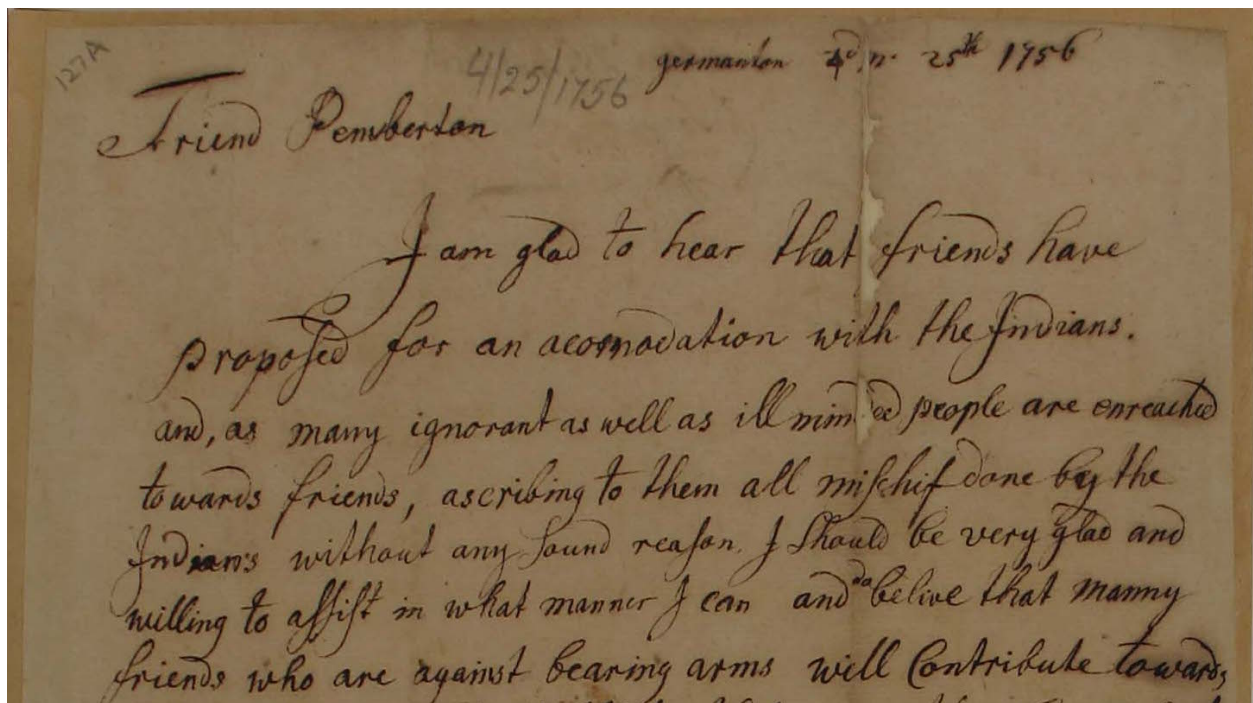 127A
4/25/1756
germanton 4d, n. 25th 1756
Friend Pemberton
I am glad to hear that friends have
proposed for an acomodation with the Indians.
and, as many ignorant as well as ill minded people are enreached
towards friends, ascribing to them all mischif done by the
Indians without any sound reason. I should be very glad and
willing to assist in what manner I can and do belive that manny
friends who are against bearing arms will Contribute towards,